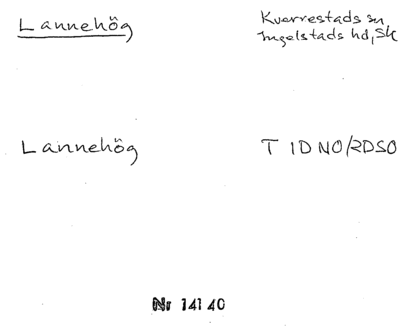 Lannehög
Kverrestads sn
Ingelstads hd, Sk
Lannehög
T 1D NO/2DSO
Nr 141 40